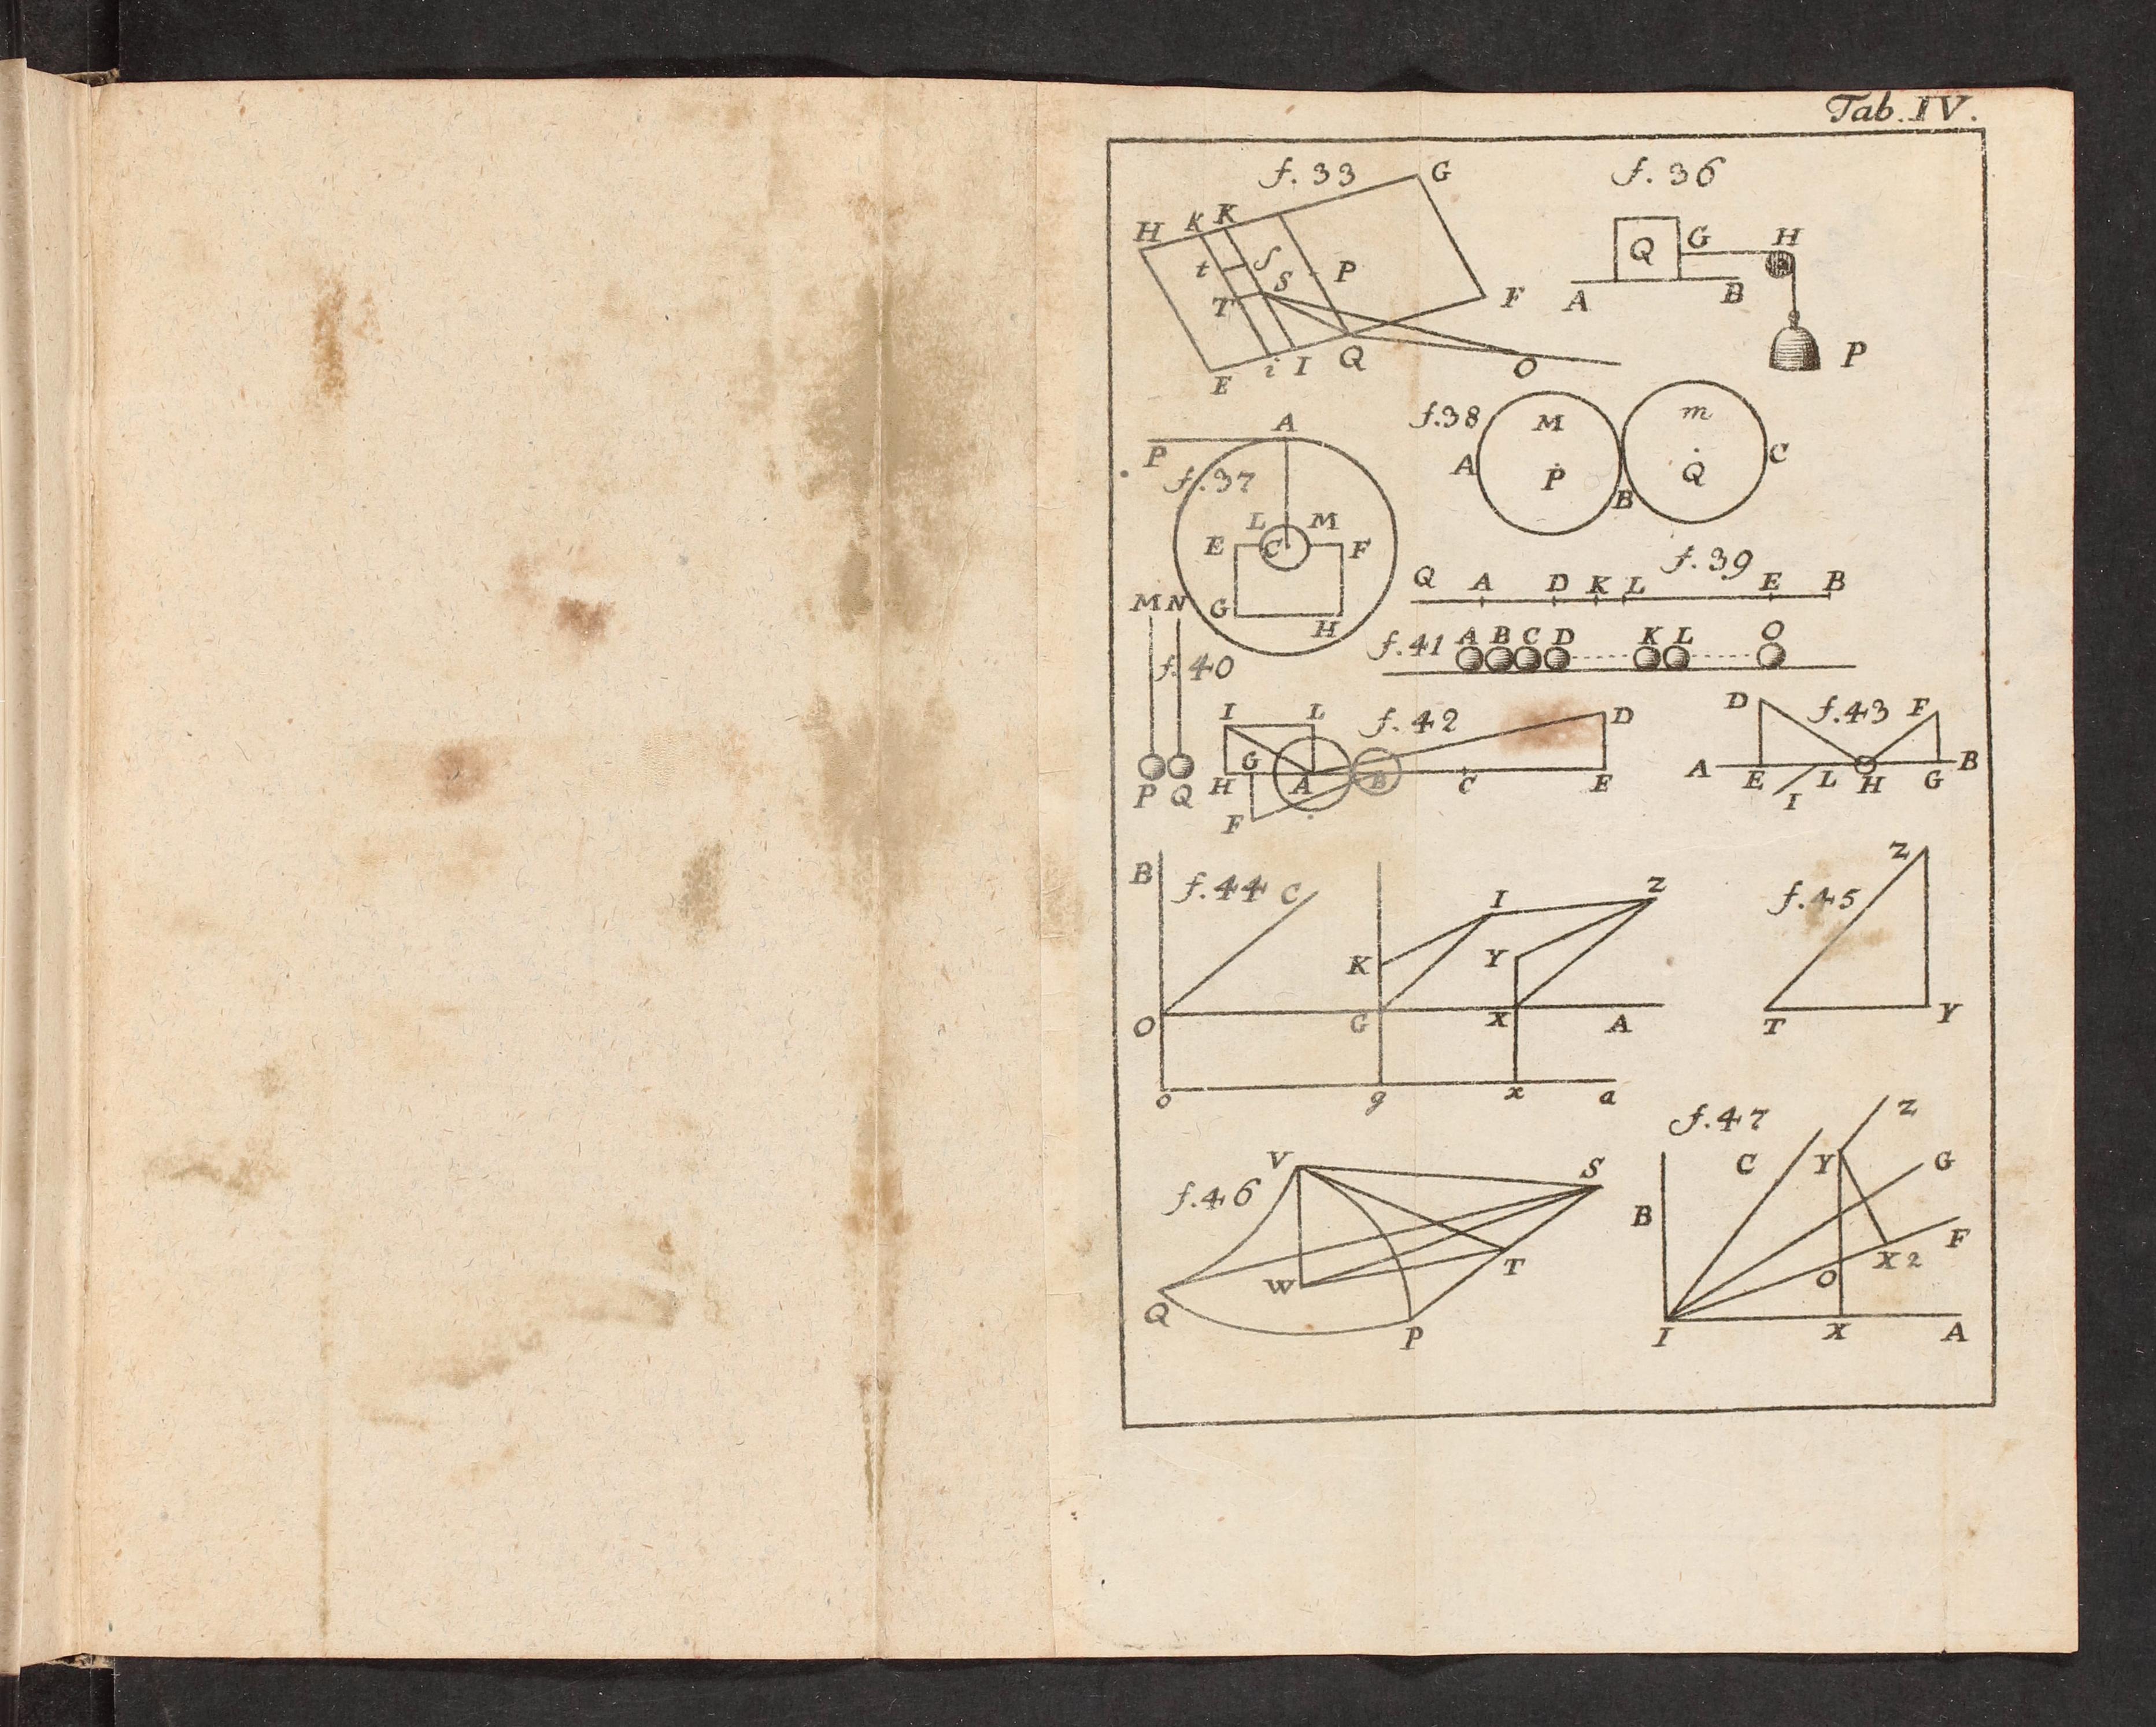 Tab. IV.
f. 33
G
H K K
t ſ
S P
T F
E i I Q O
f. 36
Q G H
A B
P
f. 37
A
P
L M
E C F
G H
f. 38
M m
A P B Q C
f. 39
Q A D K L E B
f. 40
M N
P Q
f. 41
A B C D K L O
f. 42
I L D
G
H A B C E
F
f. 43
D F
A E L H G B
I
f. 44
B C I Z
K Y
O G X A
o g x a
f. 45
Z
T Y
f. 46
V S
W T
Q P
f. 47
Z
C Y G
B F
X 2
O
I X A